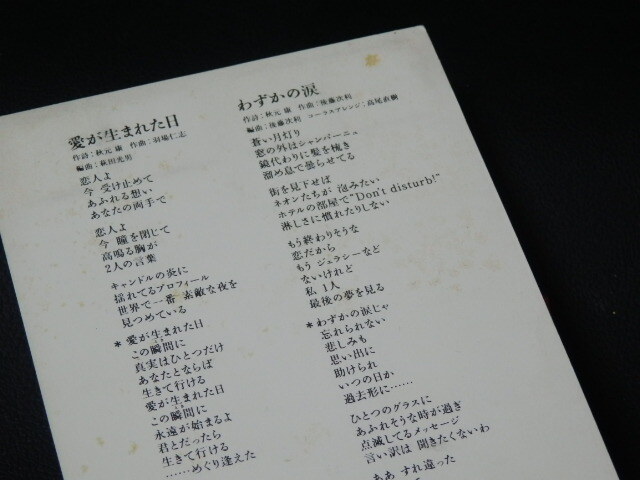 愛が生まれた日
作詩:秋元 康 作曲:羽場仁志
編曲:萩田光男
恋人よ
今 受け止めて
あふれる想い
あなたの両手で
恋人よ
今 瞳を閉じて
高鳴る胸が
2人の言葉
キャンドルの炎に
揺れてるプロフィール
世界で一番 素敵な夜を
見つめている
* 愛が生まれた日
この瞬間に
真実はひとつだけ
あなたとならば
生きて行ける
愛が生まれた日
この瞬間に
永遠が始まるよ
君とだったら
生きて行ける
……めぐり逢えた
わずかの涙
作詩:秋元 康 作曲:後藤次利
編曲:後藤次利 コーラスアレンジ:高尾直樹
蒼い月灯り
窓の外はシャンパーニュ
鏡代わりに髪を梳き
溜め息で曇らせてる
街を見下せば
ネオンたちが 泡みたい
ホテルの部屋で“Don't disturb!”
淋しさに慣れたりしない
もう終わりそうな
恋だから
もう ジェラシーなど
ないけれど
私 1人
最後の夢を見る
* わずかの涙じゃ
忘れられない
悲しみも
思い出に
助けられ
いつの日か
過去形に……
ひとつのグラスに
あふれそうな時が過ぎ
点滅してるメッセージ
言い訳は 聞きたくないわ
ああ すれ違った